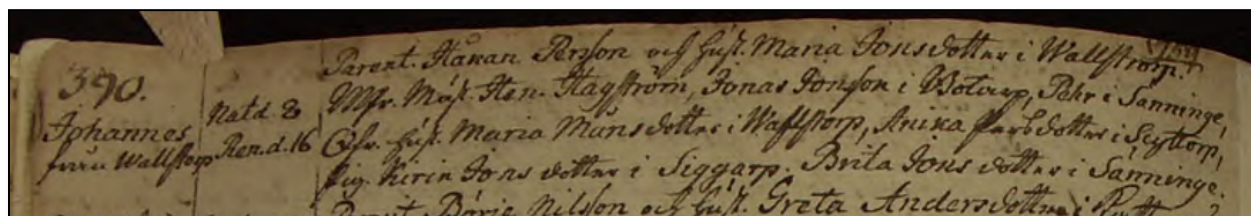 390.
Johannes
från Wallstorp
Nat. d. 8
Ren. d. 16
Parent. Håkan Persson och hust. Maria Jonsdotter i Wallstorp.
Msr. Mast. Hen. Hagström, Jonas Jonson i Botorp, Pehr i Sanninge,
hust. Maria Månsdotter i Wallstorp, Anika Persdotter i
Pig. Kirin Jonsdotter i Siggarp. Brita Jonsdotter i Sanninge.
Parent. Börje Nilsson och hust. Greta Andersdotter i